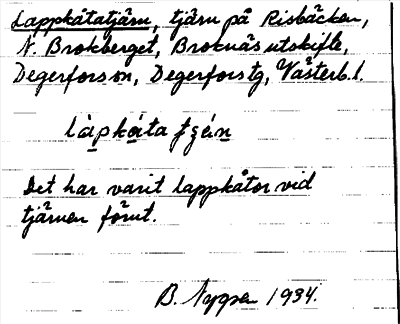 Lappkåtatjärn, tjärn på Risbäcken,
N. Brokberget, Broknäs utskifte,
Degerfors sn, Degerfors tg, Västerb. l.
làpkå̀ta
Det har varit lappkåtor vid
tjärnen förut.
B. 1934.